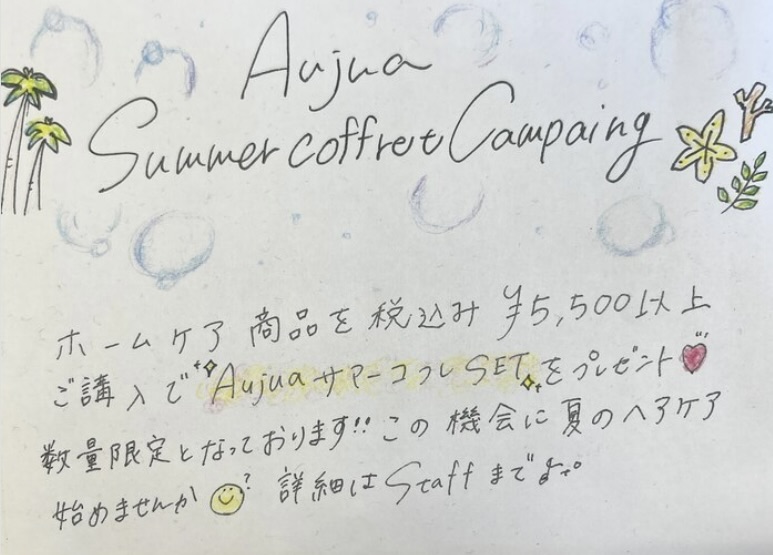 Aujua
Summer coffret Campaing
ホームケア商品を税込み ¥5,500以上
ご講入で Aujuaサマーコフレ SETをプレゼント
数量限定となっております!! この機会に夏のヘアケア
始めませんか? 詳細はStaffまで